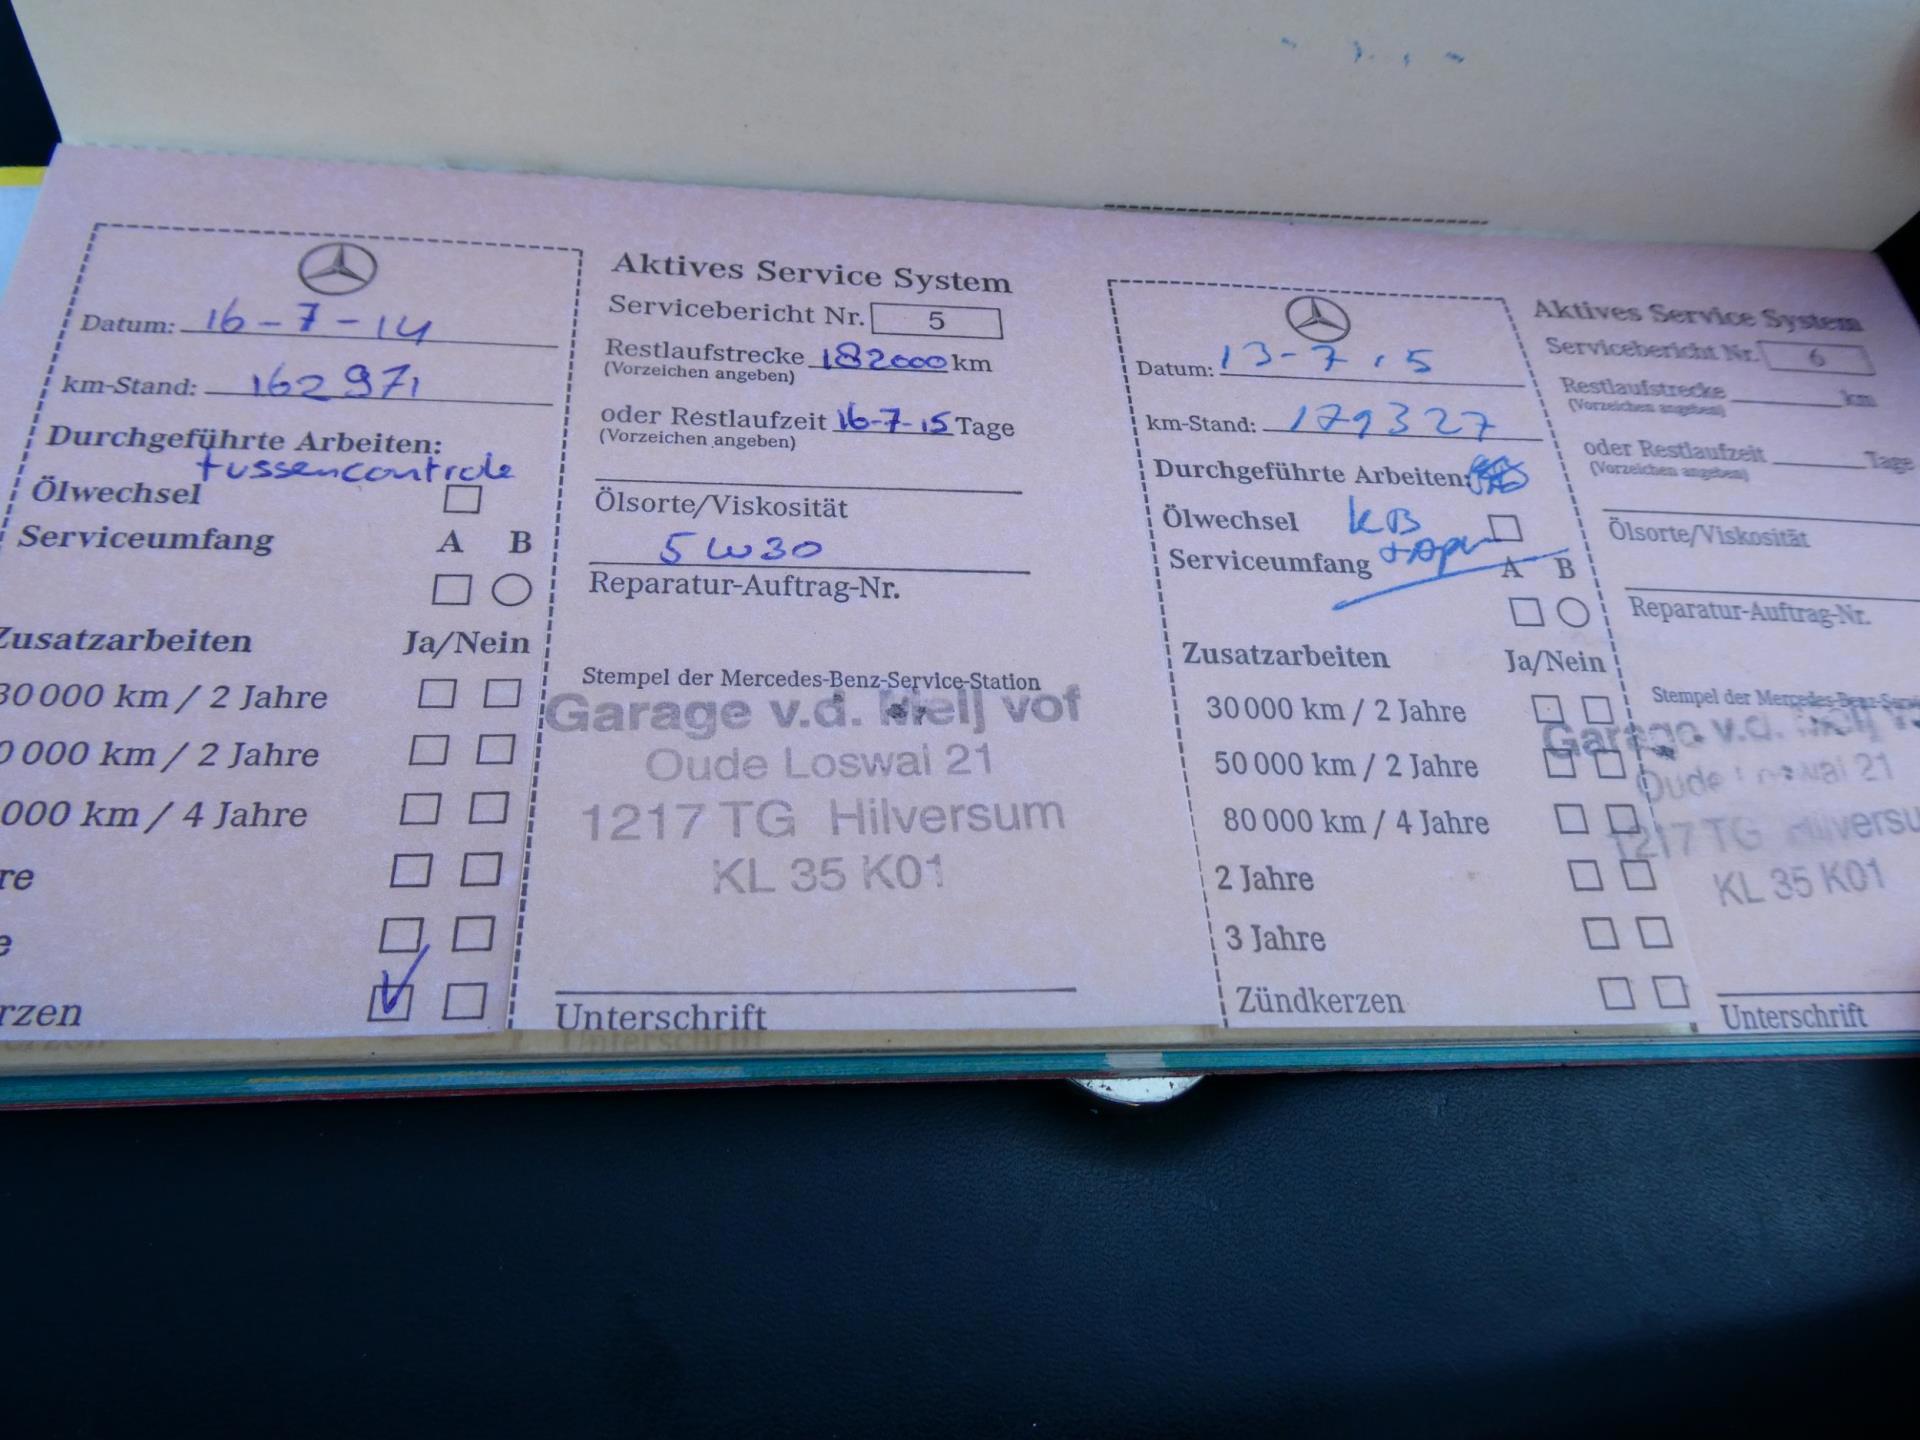 Datum: 16-7-14
km-Stand: 162971
Durchgeführte Arbeiten:
tussencontrole
Ölwechsel
Serviceumfang A B
Zusatzarbeiten Ja/Nein
30 000 km / 2 Jahre
0 000 km / 2 Jahre
000 km / 4 Jahre
re
e
rzen
Aktives Service System
Servicebericht Nr. 5
Restlaufstrecke 182000 km
(Vorzeichen angeben)
oder Restlaufzeit 16-7-15 Tage
(Vorzeichen angeben)
Ölsorte/Viskosität
5W30
Reparatur-Auftrag-Nr.
Stempel der Mercedes-Benz-Service-Station
Garage v.d. vof
Oude Loswal 21
1217 TG Hilversum
KL 35 K01
Unterschrift
Datum: 13-7.15
km-Stand: 179327
Durchgeführte Arbeiten:
Ölwechsel KB
Serviceumfang A B
Zusatzarbeiten Ja/Nein
30 000 km / 2 Jahre
50 000 km / 2 Jahre
80 000 km / 4 Jahre
2 Jahre
3 Jahre
Zündkerzen
Aktives Service System
Servicebericht Nr. 6
Restlaufstrecke km
(Vorzeichen angeben)
oder Restlaufzeit Tage
(Vorzeichen angeben)
Ölsorte/Viskosität
Reparatur-Auftrag-Nr.
Stempel der Mercedes-Benz-Servi
Garage v.d.
Oude Loswal 21
1217 TG Hilversu
KL 35 K01
Unterschrift